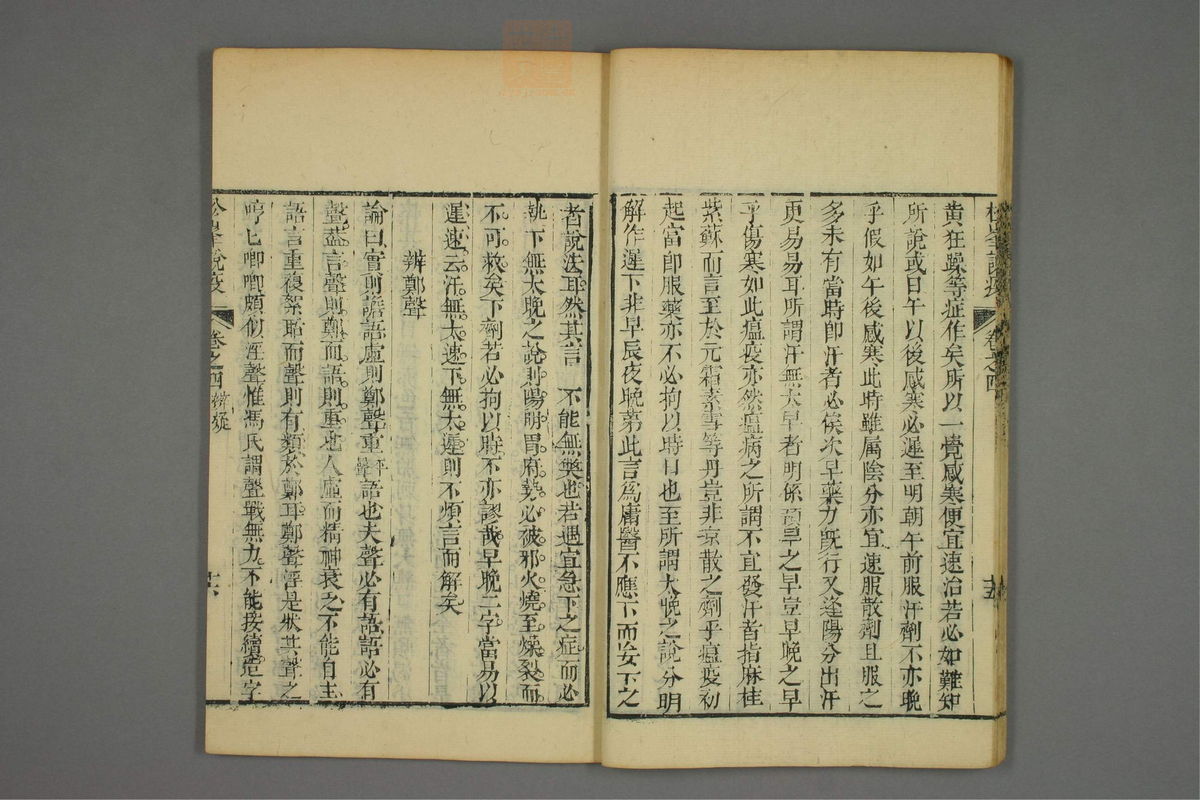 松峯說疫 卷之四 十五
黄狂躁等症作矣所以一覺感寒便宜速治若必如難知
所說或日午以後感寒必遲至明朝午前服汗劑不亦晚
乎假如午後感寒此時雖属陰分亦宜速服散劑且服之
多未有當時卽汗者必俟次早藥力旣行又逢陽分出汗
更易易耳所謂汗無太早者明係預早之早豈早晚之早
乎傷寒如此瘟疫亦然瘟病之所謂不宜發汗者指麻桂
紫蘇而言至於元霜素雪等丹豈非凉散之劑乎瘟疫初
起當卽服藥亦不必拘以時日也至所謂太晚之說分明
解作遲下非早辰夜晚第此言爲庸醫不應下而妄下之
者說法耳然其言不能無獘也若遇宜急下之症而必
執下無太晚之說則陽明胃府勢必被邪火燒至燥裂而
不可救矣下劑若必拘以時不亦謬哉早晚二字當易以
遲速云汗無太速下無太遲則不煩言而解矣
辨鄭聲
論曰實則譫語虛則鄭聲重語也夫聲必有語語必有
聲葢言聲則鄭而語則重也人虛而精神衰乏不能自主
語言重複絮聒而聲則有類於鄭耳鄭聲淫是狀其聲之
哼匕唧唧頗似淫聲惟馮氏謂聲戰無力不能接續造字
松峯說疫 卷之四 辨疑 十六